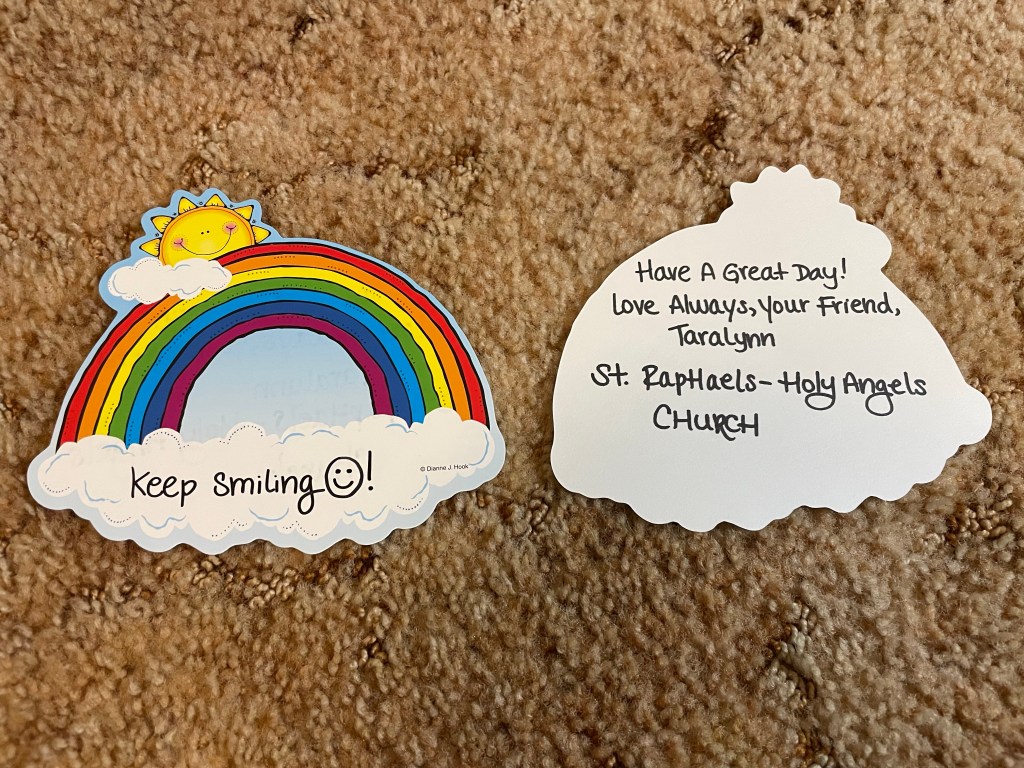 Keep Smiling☺!
© Dianne J. Hook
Have A Great Day!
Love Always, Your Friend,
Taralynn
St. RapHaels-Holy Angels
CHURCH